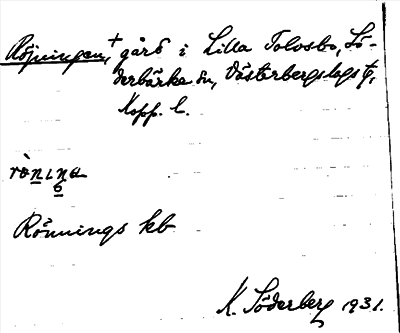 Röjningen,+ gård i Lilla Tolvsbo, Sö-
derbärke sn, Västerbergslags tg,
Kopp. l.
Rönnings kb
K. Söderberg 1931.